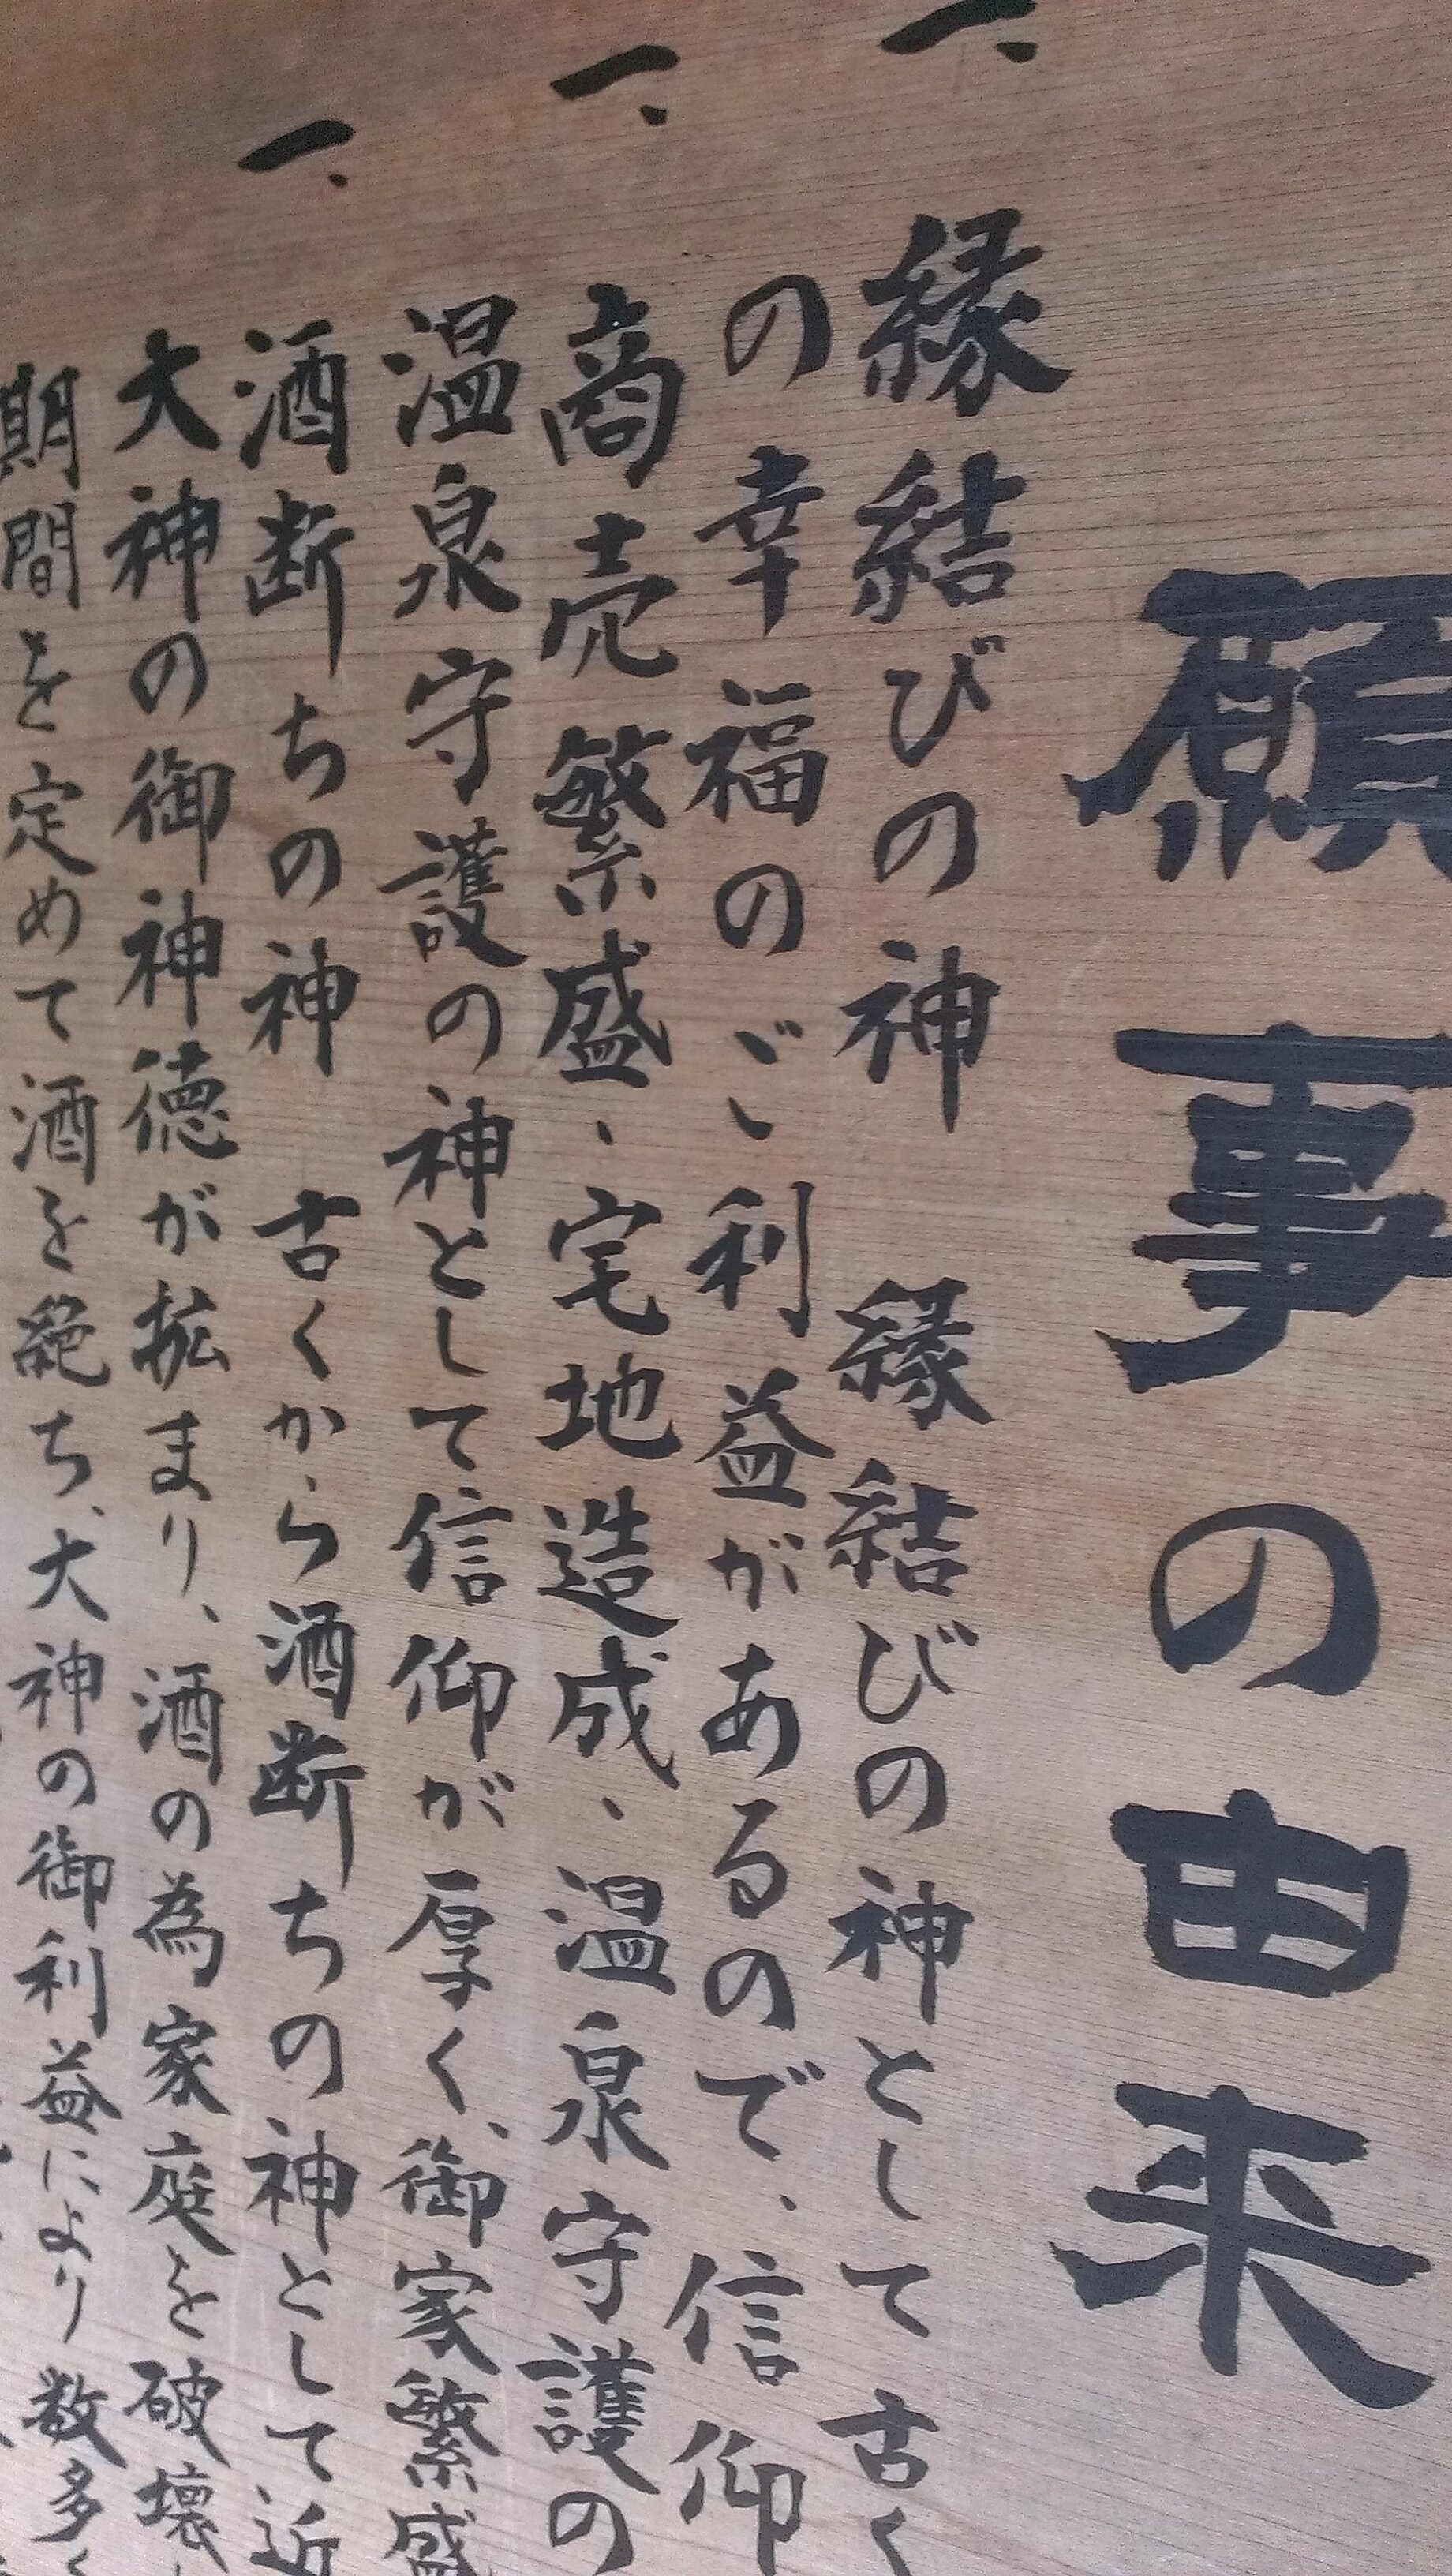 願事の由来
一、縁結びの神　縁結びの神として古く
の幸福のご利益があるので、信仰
一、商売繁盛、宅地造成、温泉守護の
温泉守護の神として信仰が厚く、御家繁盛
一、酒断ちの神　古くから酒断ちの神として近
大神の御神徳が拡まり、酒の為家庭を破壊
期間を定めて酒を絶ち、大神の御利益により数多く